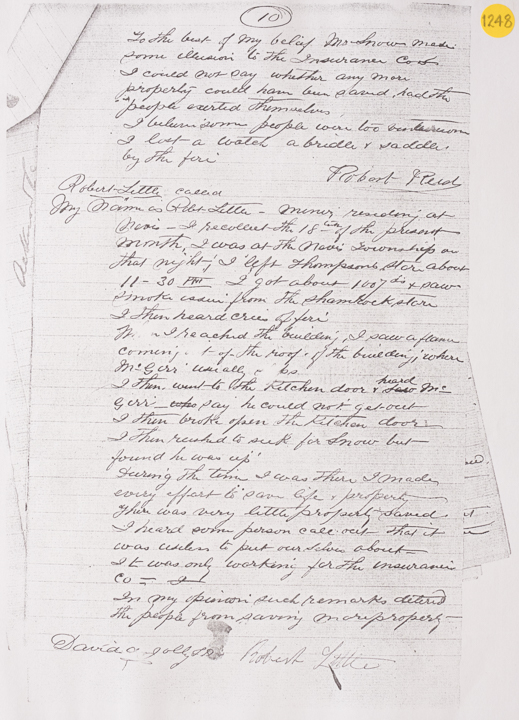 10
1248
To the best of my belief Mr Snow made
some illusion to the Insurance Co
I could not say whether any more
property could have been saved, had the
people exerted themselves.
I believe some people were too
I lost a watch a bridle & saddle
by the fire
Robert Reid
Robert Little called
My Name is Robt Little - miner residing at
Nevis - I recollect the 18th of the present
month, I was at the Nevis Township on
that night, I left Thompsons store about
11-30 PM I got about 100 yds & saw
smoke issue from the Shamrock store
I then heard cries of fire
I reached the building, I saw a flame
coming out of the roof of the building where
McGirr usually
I then went to the Kitchen door & heard Mc
Girr say he could not get out
I then broke open the Kitchen door
I then rushed to seek for Snow but
found he was up
During the time I was there I made
every effort to save life & property
There was very little property saved
I heard some person call out that it
was useless to put ourselves about -
It was only working for the insurance
Co = I
In my opinion such remarks deterred
the people from saving more property -
David Robert Little